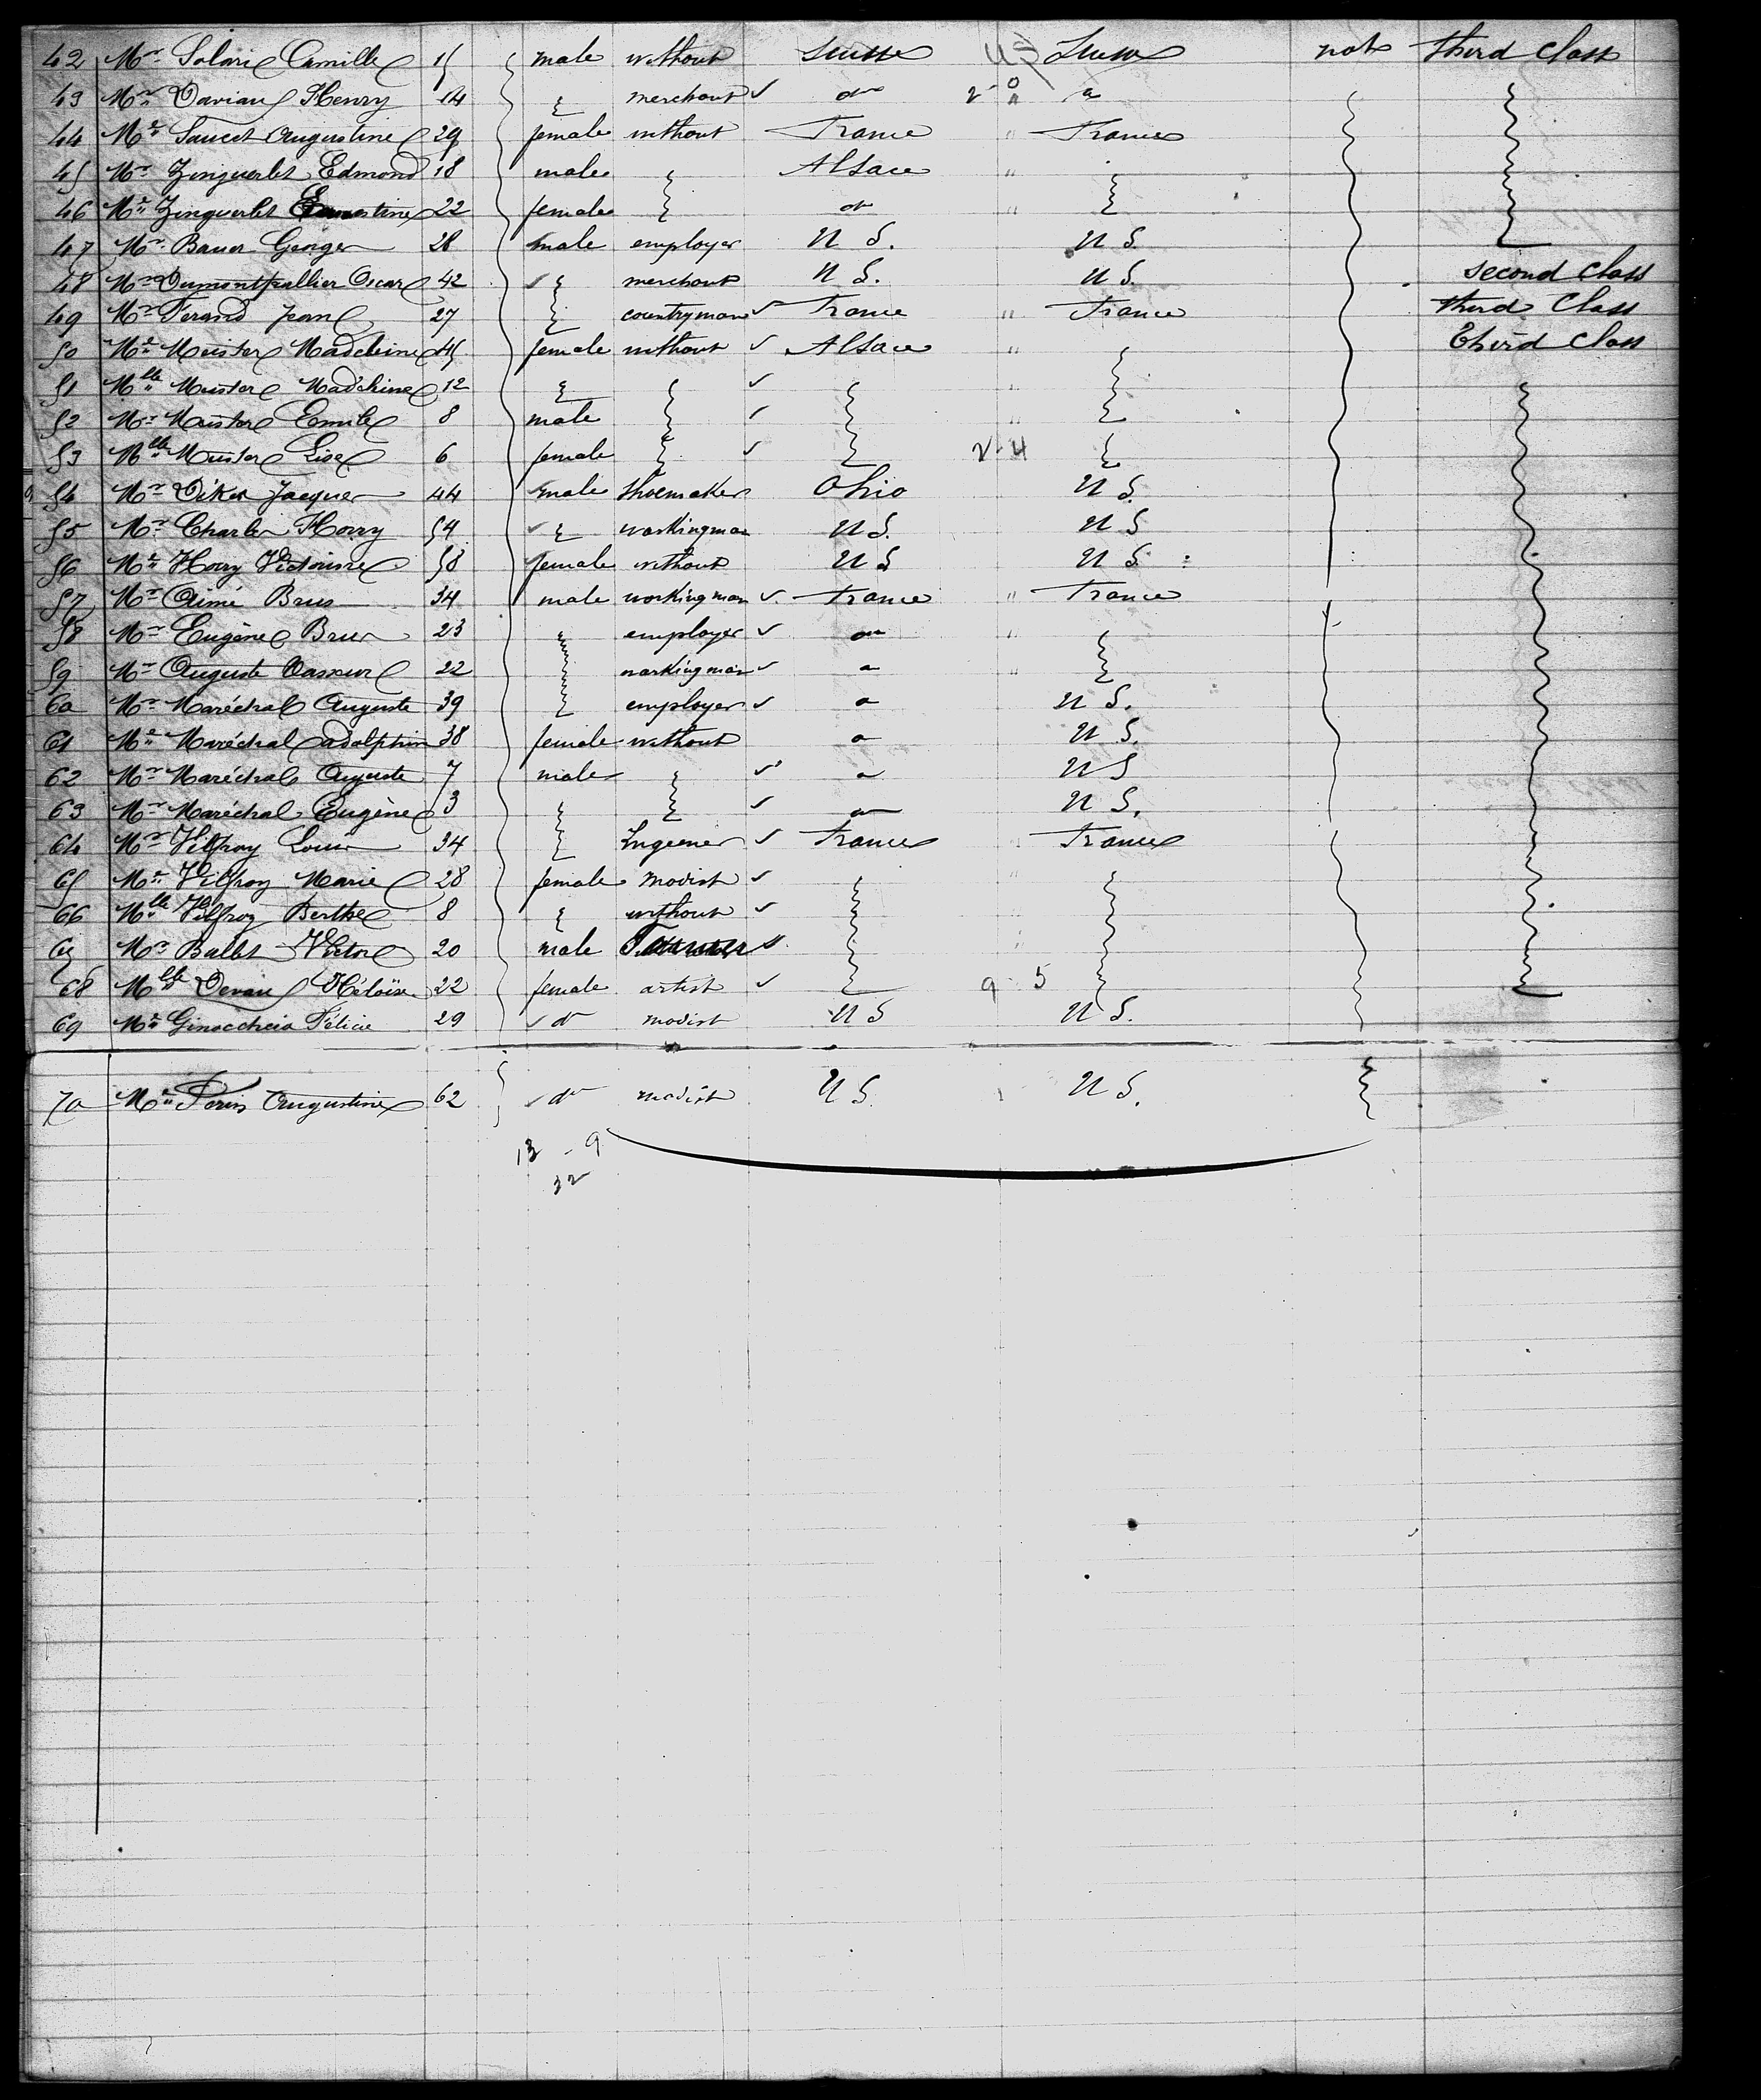 42 Mr Solari Camille 15 male without Suisse US Suisse not third class
43 Mr Davian Henry 14 merchant ✓ do 2 0
44 Me Saucet Augustine 29 female without France " France
45 Mr Zinguerlet Edmond 18 male Alsace "
46 Me Zinguerlet Ernestine 22 female do "
47 Mr Bauer Georges 28 male employer U S. U S.
48 Mr Dumontpallier Oscar 42 ✓ merchant U S. U S. second class
49 Mr Ferand Jean 27 countryman ✓ France " France third Class
50 Me Meister Madeleine 45 female without ✓ Alsace " third class
51 Mlle Meister Madeleine 12 ✓ "
52 Mr Meister Emile 8 male ✓ "
53 Mlle Meister Lise 6 female ✓ 2 4
54 Mr Diker Jacques 44 male shoemaker Ohio U S.
55 Mr Charles Horry 54 ✓ workingman U S. U S
56 Me Horry Victorine 58 female without U S U S
57 Mr Aimé Brus 34 male workingman ✓ France " France
58 Mr Eugène Brus 23 employer ✓ do "
59 Mr Auguste Vasseur 22 workingman ✓ "
60 Mr Maréchal Auguste 39 employer ✓ U S.
61 Me Maréchal adolphine 38 female without U S.
62 Mr Maréchal Auguste 7 male ✓ U S
63 Mr Maréchal Eugène 3 ✓ U S.
64 Mr Vilfroy Louis 34 Ingeener ✓ France France
65 Me Vilfroy Marie 28 female modist ✓ "
66 Mlle Vilfroy Berthe 8 without ✓
67 Mr Ballet Victor 20 male ✓
68 Mlle Devau Héloïse 22 female artist ✓ 9 5
69 Me Ginoccheio Félicie 29 ✓ do modist U S U S.
70 Me Augustine 62 ✓ do modist U S. U S.
13 - 9
32